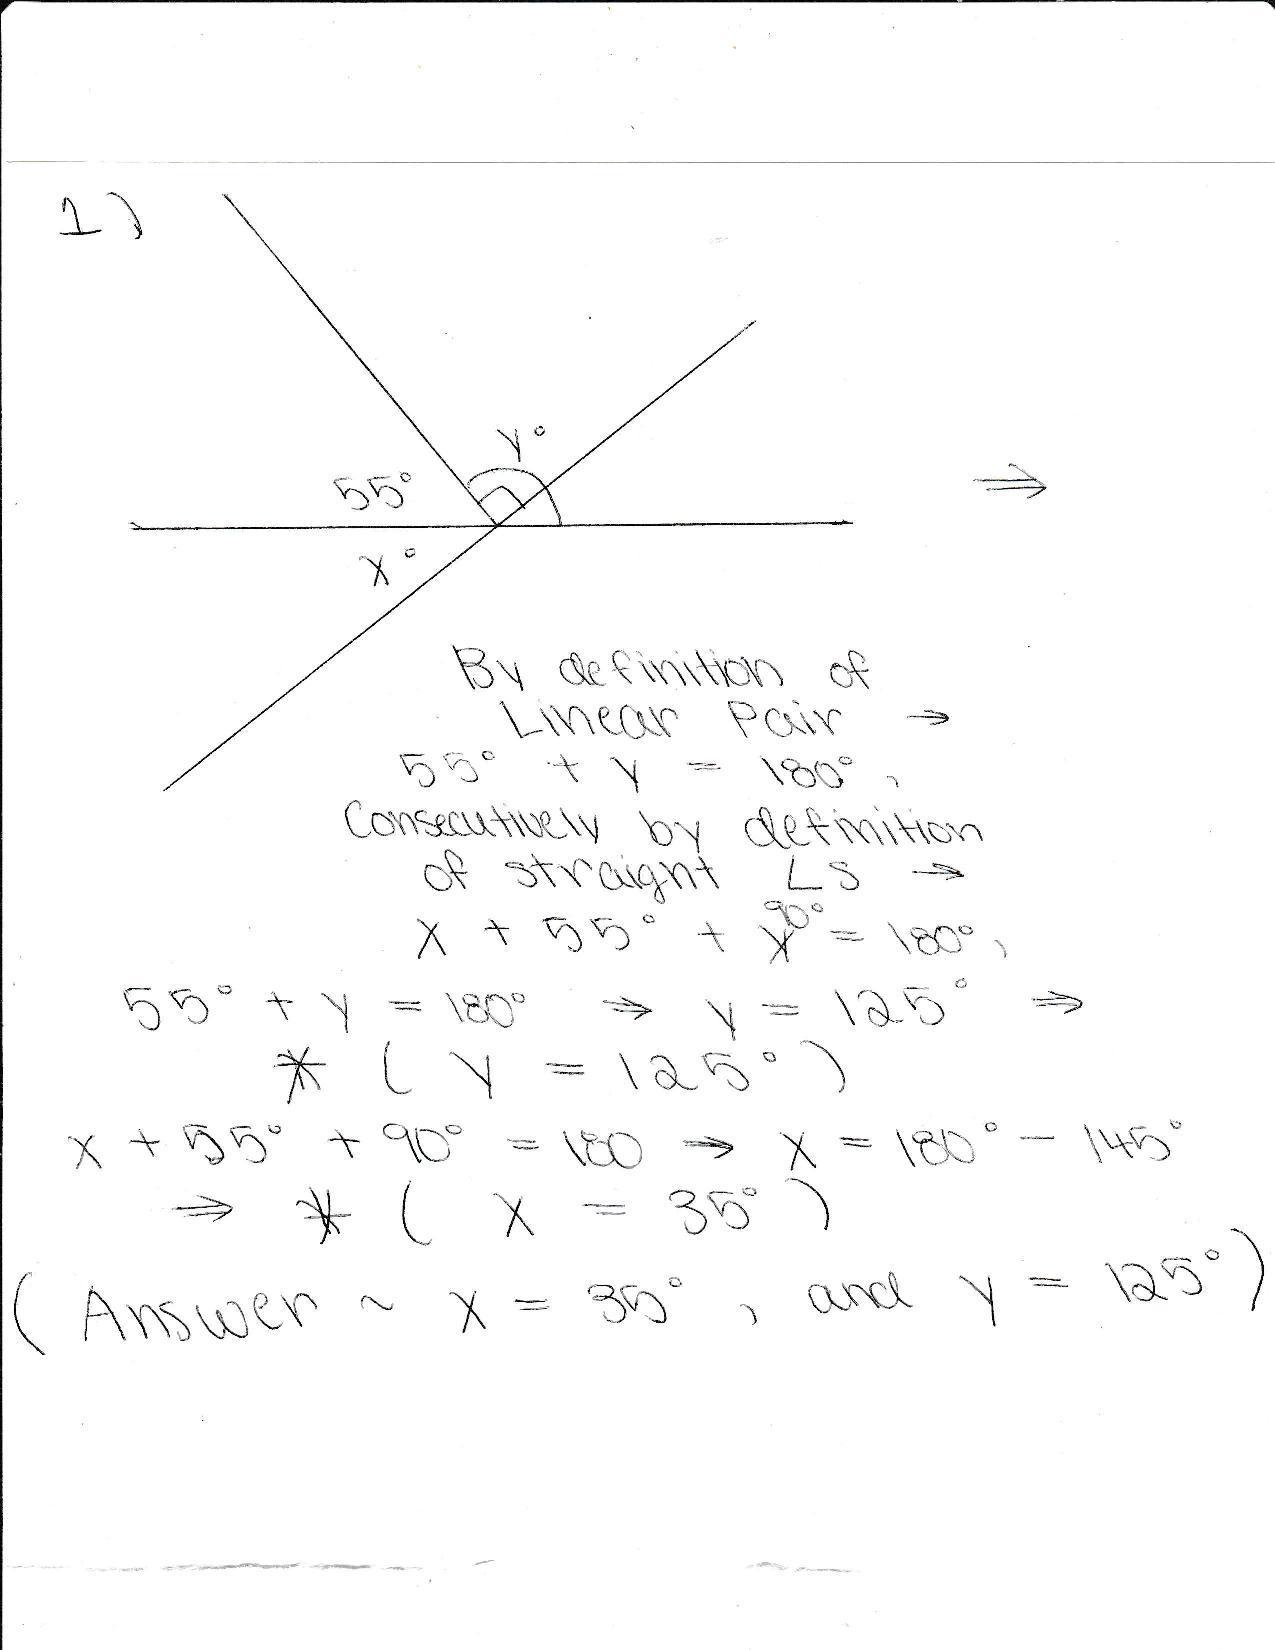 1)
y°
55°
x°
⇒
By definition of
Linear Pair →
55° + y = 180°,
Consecutively by definition
of straight ∠s →
90°
x + 55° + = 180°,
55° + y = 180° → y = 125° ⇒
* ( y = 125° )
x + 55° + 90° = 180 → x = 180° - 145°
⇒ * ( x = 35° )
(Answer ~ x = 35°, and y = 125°)